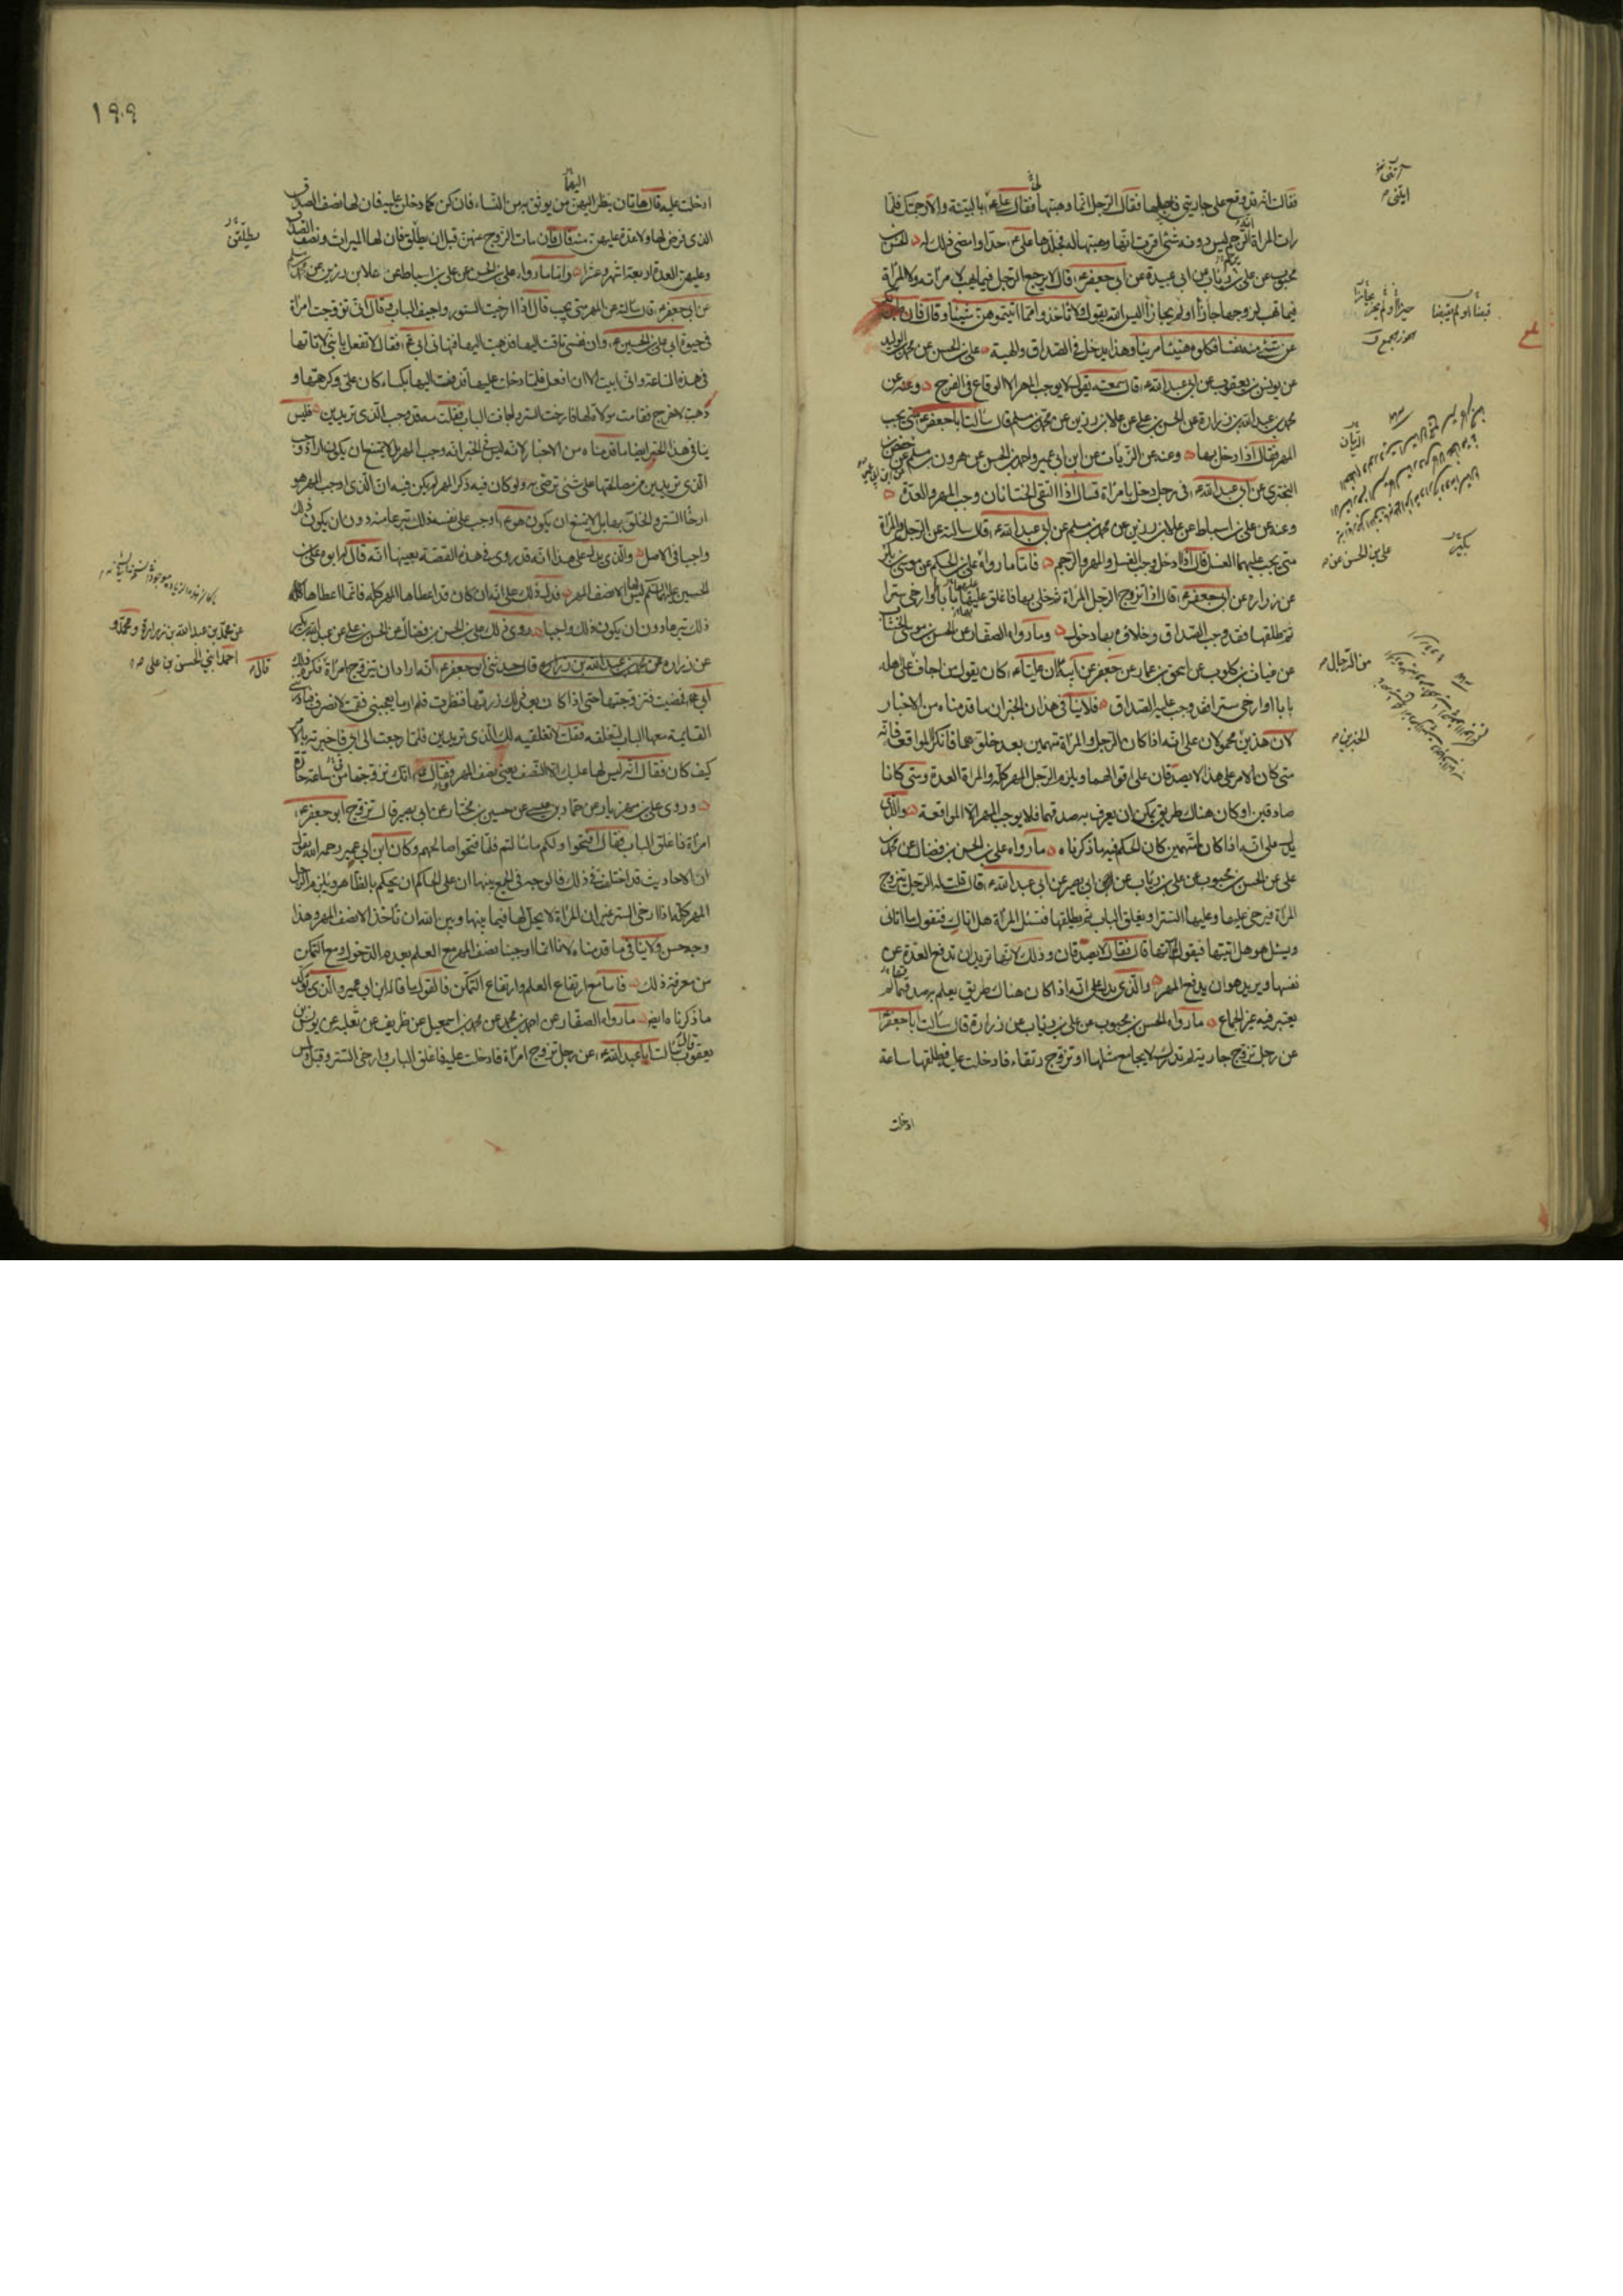 فقالت انه قد وقع على جاريتى فاحبلها فقال الرجل انما وهبتها فقال على ع ايتنى بالبينة والا رجمتك فلما
رات المراة انه الرجم ليس دونه شئ اقرت انها وهبتها له فجلدها على ع حدا وامضى ذلك له الحسن بن
محبوب عن على بن رئاب عن ابى عبيدة عن ابى جعفر ع قال لا يرجع الرجل فيما يهب لامراته ولا المراة
فيما تهب لزوجها جازا او لم يجازا اليس الله يقول ولا تاخذوا مما اتيتموهن شيئا وقال فان طبن لكم
عن شئ منه نفسا فكلوه هنيئا مريئا وهذا يدخل فى الصداق والهبة على بن الحسن عن محمد بن الوليد
عن يونس بن يعقوب عن ابى عبد الله ع قال سمعته يقول لا يوجب المهر الا الوقاع فى الفرج وعنه عن
محمد بن عبد الله بن زرارة عن الحسن بن على عن علا بن رزين عن محمد بن مسلم قال سالت ابا جعفر ع متى يجب
المهر فقال اذا دخل بها وعنه عن الزيات عن ابن ابى عمير واحمد بن الحسن عن هرون بن مسلم عن
البخترى عن ابى عبد الله ع فى رجل دخل بامراة قال اذا التقى الختانان وجب المهر والعدة
وعنه عن على بن اسباط عن علا بن رزين عن محمد بن مسلم عن ابى عبد الله ع قال سالته عن الرجل والمراة
متى يجب عليهما الغسل قال اذا ادخله وجب الغسل والمهر والرجم فاما ما رواه على بن الحكم عن موسى بن بكر
عن زرارة عن ابى جعفر ع قال اذا تزوج الرجل المراة ثم خلى بها فاغلق عليها بابا او ارخى سترا
ثم طلقها فقد وجب الصداق وخلاؤه بها دخول وما رواه الصفار عن الحسن بن موسى الخشاب
عن غياث بن كلوب عن اسحق بن عمار عن جعفر عن ابيه ان عليا ع كان يقول من اجاف على اهله
بابا او ارخى سترا فقد وجب عليه الصداق فلا ينافى هذان الخبران ما قدمناه من الاخبار
لان هذين محمولان على انه اذا كان الرجل والمراة متهمين بعد خلوتهما فانكرا المواقعة فانه
متى كان الامر على هذا لا يصدقان على اقوالهما ويلزم الرجل المهر كله والمراة العدة ومتى كانا
صادقين او كان هناك طريق يمكن ان يعرف به صدقهما فلا يوجب المهر الا المواقعة والذى
يدل على انه اذا كانا متهمين كان الحكم فيه ما ذكرناه ما رواه على بن الحسن بن فضال عن محمد بن
على عن الحسن بن محبوب عن على بن رئاب عن ابى بصير عن ابى عبد الله ع قال قلت له الرجل يتزوج
المراة فيرخى عليها وعليه الستر او يغلق الباب ثم يطلقها فتسئل المراة هل اتاك فتقول ما اتانى
ويسئل هو هل اتيتها فيقول لم اتها قال فقال لا يصدقان وذلك لانها تريد ان تدفع العدة عن
نفسها ويريد هو ان يدفع المهر والذى يدل على انه اذا كان هناك طريق يعلم به صدقهما لم
يعتبر فيه غير الجماع ما رواه الحسن بن محبوب عن على بن رئاب عن زرارة قال سالت ابا جعفر ع
عن رجل تزوج جارية لم تدرك لا يجامع مثلها او تزوج رتقاء فادخلت عليه فطلقها ساعة
ادخلت
ايتنى
الزيات
على بن الحسن عن
بكير
من الرجال
الخبرين
١٩٩
ادخلت عليه قال هاتان ينظر اليهن من يوثق به من النساء فان كن كما دخلن عليه فان لها نصف الصداق
الذى فرض لها ولا عدة عليهن منه قال فان مات الزوج عنهن قبل ان يطلق فان لها الميراث ونصف الصداق
وعليهن العدة اربعة اشهر وعشرا واما ما رواه على بن الحسن عن على بن اسباط عن علا بن رزين عن محمد بن مسلم
عن ابى جعفر ع قال سالته عن المهر متى يجب قال اذا ارخيت الستور واجيف الباب وقال انى تزوجت امراة
فى حيوة ابى على بن الحسين ع وان نفسى تاقت اليها فذهبت اليها فنهانى ابى ع فقال لا تفعل يا بنى لا تاتها
فى هذه الساعة وانى ابيت الا ان افعل فلما دخلت عليها قذفت اليها بكساء كان على وكرهتها و
ذهبت لاخرج فقامت مولاة لها فارخت الستر واجافت الباب فقلت مه قد وجب الذى تريدين فليس
ينافى هذا الخبر ايضا ما قدمناه من الاخبار لانه ليس فى الخبر انه وجب المهر بل لا يمتنع ان يكون اراد وجب
الذى تريدين من مصالحتها على شئ ترضى به ولو كان فيه ذكر المهر لم يكن فيه ان الذى اوجب المهر هو
ارخاء الستر والخلق بها بل لا يمتنع ان يكون هو ع اوجب على نفسه ذلك تبرعا منه دون ان يكون ذلك
واجبا فى الاصل والذى يدل على هذا انه قد روى فى هذه القصة بعينها انه قال له ابوه على بن
الحسين عليهما السلم ليس لها الا نصف المهر فدل ذلك على انه ان كان قد اعطاها المهر كله فانما اعطاها كله
ذلك تبرعا دون ان يكون ذلك واجبا روى ذلك على بن الحسن بن فضال عن الحسن بن على عن عبد الله بن بكير
عن زرارة عن محمد بن عبد الله بن زرارة قال حدثنى ابو جعفر ع انه اراد ان يتزوج امراة فكره ذلك
ابى ع فمضيت فتزوجتها حتى اذا كان بعد ذلك زرتها فنظرت فلم ار ما يعجبنى فقمت لانصرف فبادرتنى
القائمة معها الباب لتغلقه فقلت لا تغلقيه لك الذى تريدين فلما رجعت الى ابى فاخبرته بالامر
كيف كان فقال انه ليس لها عليك الا النصف يعنى نصف المهر وقال انك تزوجتها فى ساعة حارة
وروى على بن مهزيار عن حماد بن عيسى عن حسين بن مختار عن ابى بصير قال تزوج ابو جعفر ع
امراة فاغلق الباب فقال افتحوا ولكم ما سالتم فلما فتحوا صالحهم وكان ابن ابى عمير رحمه الله يقول
ان الاحاديث قد اختلفت فى ذلك فالوجه فى الجمع بينها ان على الحاكم ان يحكم بالظاهر ويلزم الرجل
المهر كله اذا ارخى الستر غير ان المراة لا يحل لها فيما بينها وبين الله ان تاخذ الا نصف المهر وهذا
وجه حسن ولا ينافى ما قدمناه لانا انما اوجبنا نصف المهر مع العلم بعدم الدخول ومع التمكن
من معرفة ذلك فاما مع ارتفاع العلم وارتفاع التمكن فالقول ما قاله ابن ابى عمير والذى يؤكد
ما ذكرناه ايضا ما رواه الصفار عن احمد بن محمد عن محمد بن اسمعيل عن ظريف عن ثعلبة عن يونس بن
يعقوب قال سالت ابا عبد الله ع عن رجل تزوج امراة فادخلت عليه فاغلق الباب وارخى الستر وقبل ولمس
عن محمد بن عبد الله بن زرارة ومحمد و
احمد ابنى الحسن بن على
قال